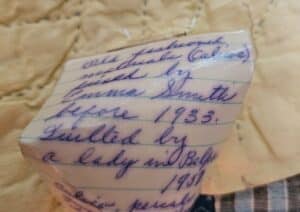 Old fashioned
materials (Calicos)
Pieced by
Emma Smith
before 1933.
Quilted by
a lady in
193